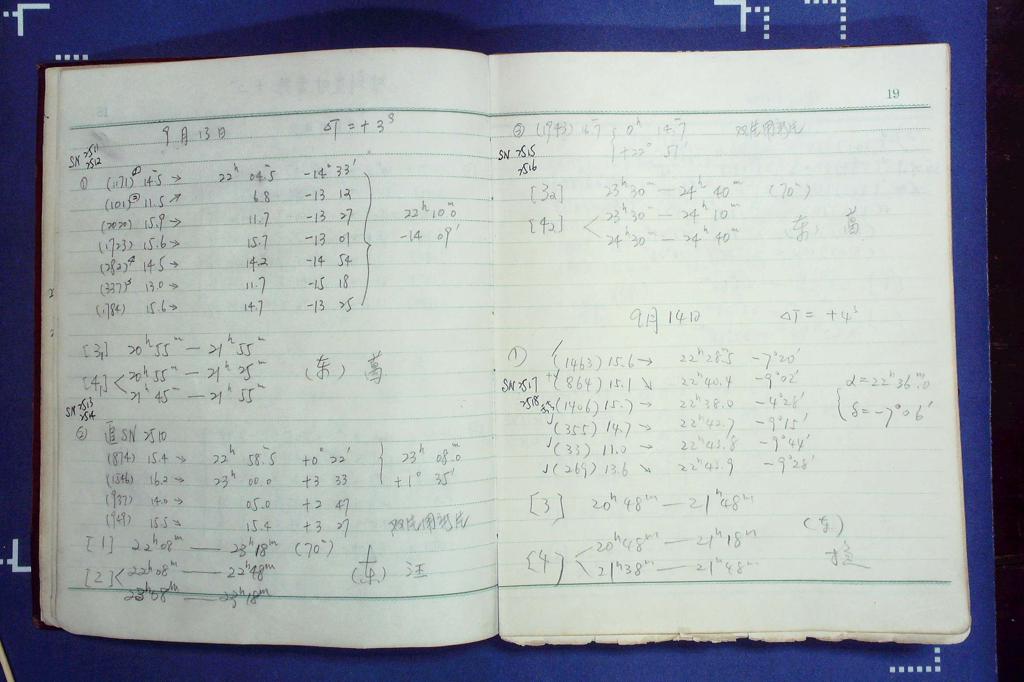 9月13日 ΔT=+3ˢ
SN 7511
7512
① (1171) 14.5→ 22ʰ 04.5 -14° 33′
(101) 11.5↗ 6.8 -13 12
(2020) 15.9→ 11.7 -13 27
(1723) 15.6→ 15.7 -13 01
(282) 14.5→ 14.2 -14 54
(337) 13.0→ 11.7 -15 18
(1784) 15.6→ 14.7 -13 25
22ʰ 10ᵐ.0
-14 09′
[3] 20ʰ55ᵐ — 21ʰ55ᵐ
[4] 20ʰ55ᵐ — 21ʰ25ᵐ (东)
21ʰ45ᵐ — 21ʰ55ᵐ
SN 7513
7514
② 追SN 7510
(874) 15.4→ 22ʰ 58.5 +0° 22′ 23ʰ 08ᵐ.0
(1546) 16.2→ 23ʰ 00.0 +3 33 +1° 35′
(937) 14.0→ 05.0 +2 47
(949) 15.5→ 15.4 +3 27
[1] 22ʰ08ᵐ — 23ʰ18ᵐ (70ᵐ)
[2] 22ʰ08ᵐ — 22ʰ48ᵐ (东) 汪
23ʰ08ᵐ — 23ʰ18ᵐ
19
② (1943) 16.7 0ʰ 14.7
+22° 51′
SN 7515
7516
[32] 23ʰ30ᵐ — 24ʰ40ᵐ (70ᵐ)
[42] 23ʰ30ᵐ — 24ʰ10ᵐ (东)
24ʰ30ᵐ — 24ʰ40ᵐ
9月14日 ΔT=+4ˢ
① (1463) 15.6→ 22ʰ28.5 -7°20′
SN 7517 (864) 15.1↘ 22ʰ40.4 -9°02′ α=22ʰ36ᵐ.0
7518 (1406) 15.7→ 22ʰ38.0 -4°28′ δ=-7°06′
(355) 14.7→ 22ʰ42.7 -9°15′
(33) 11.0→ 22ʰ43.8 -9°44′
(269) 13.6↘ 22ʰ43.9 -9°28′
[3] 20ʰ48ᵐ — 21ʰ48ᵐ
[4] 20ʰ48ᵐ — 21ʰ18ᵐ (东)
21ʰ38ᵐ — 21ʰ48ᵐ